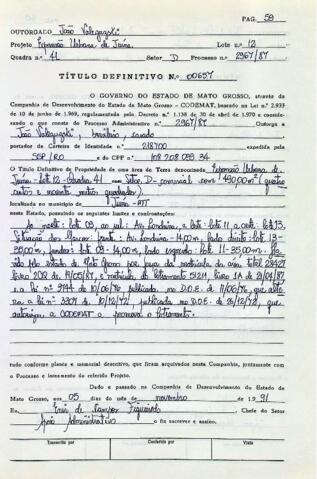 PAG. 59
OUTORGADO João Valezynski
Projeto Expansão Urbana de Juína. Lote n.º 12
Quadra n.º 41 Setor D Processo n.º 2967/87
TÍTULO DEFINITIVO N.º 00657
O GOVERNO DO ESTADO DE MATO GROSSO, através da
Companhia de Desenvolvimento do Estado de Mato Grosso - CODEMAT, baseado na Lei n.º 2.933
de 10 de junho de 1.969, regulamentada pelo Decreto n.º 1.138 de 30 de abril de 1.970 e consi-
derando o que consta do Processo Administrativo n.º 2967/87 Outorga a
brasileiro, casado
portador da Carteira de Identidade n.º 218700 expedida pela
SSP/RO e do CPF n.º
O Título Definitivo de Propriedade de uma área de Terra denominada Expansão Urbana de
Juína. Lote 12 - Quadra 41 - Setor D - comercial com 490,00m² (quatro
centos e noventa metros quadrados).
localizada no município de Juína - MT
neste Estado, possuindo os seguintes limites e confrontações:
Ao norte: lote 03, ao sul: Av. Londrina, a leste: lote 11, a oeste: lote 13.
Av. Londrina - 14,00m, lado direito: lote 13 -
35,00m, fundos: lote 03 - 14,00m, lado esquerdo: lote 11 - 35,00m.
da matrícula da área total
livro 2
a lei nº 3744 de 10/06/76 publicada no D.O.E. de 11/06/76, que
a lei nº 3307 de 10/12/72, publicada no D.O.E. de
autoriza a CODEMAT a promover o loteamento.
tudo conforme planta e memorial descritivo, que ficam arquivados nesta Companhia, juntamente com
o Processo e instrumento do referido Projeto.
Dado e passado na Companhia de Desenvolvimento do Estado de
Mato Grosso, aos 05 dias do mês de novembro de 1991
Eu, de Campos Figueiredo Chefe do Setor
Apoio Administrativo o fiz escrever e assino.
Transcrito por Conferido por Visto